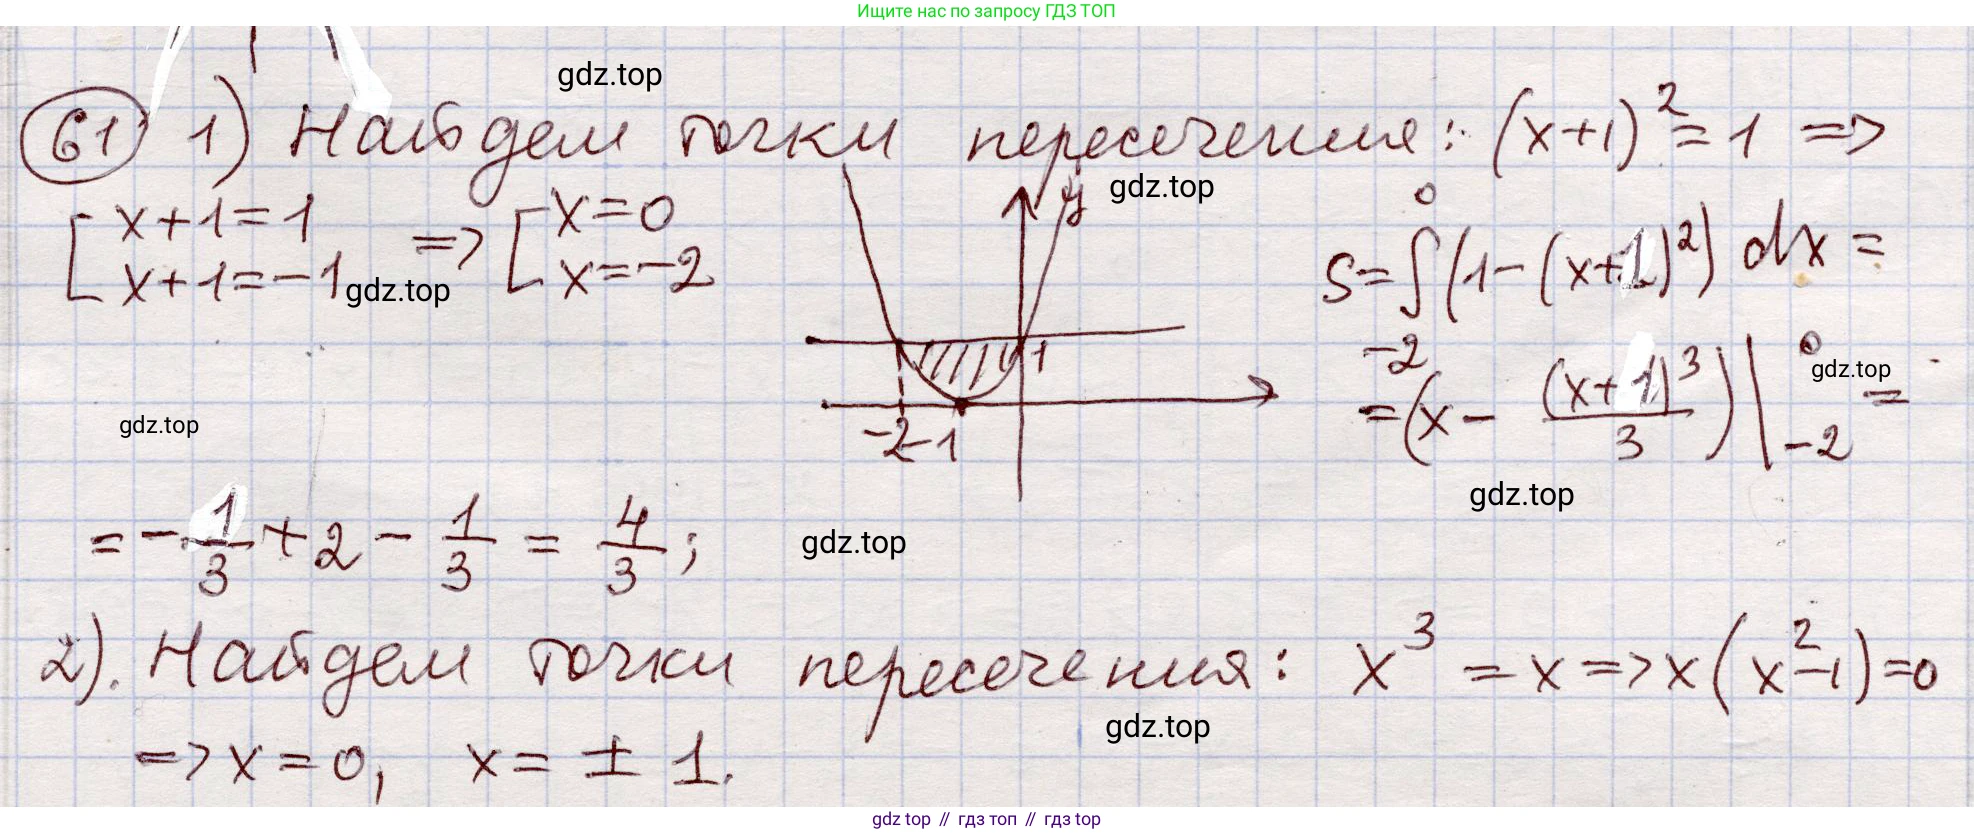 Ищите нас по запросу ГДЗ ТОП
gdz.top
61 1) Найдем точки пересечения: (x+1)² = 1 =>
gdz.top
[x+1=1 => [x=0
x+1=-1 x=-2
gdz.top
y
1
-2 -1
S = ∫₋₂⁰ (1-(x+1)²) dx =
= (x - (x+1)³/3) |₋₂⁰ =
gdz.top
gdz.top
gdz.top
= -1/3 + 2 - 1/3 = 4/3;
gdz.top
2). Найдем точки пересечения: x³ = x => x(x²-1)=0
gdz.top
=> x = 0, x = ± 1.
gdz top // гдз топ // гдз top